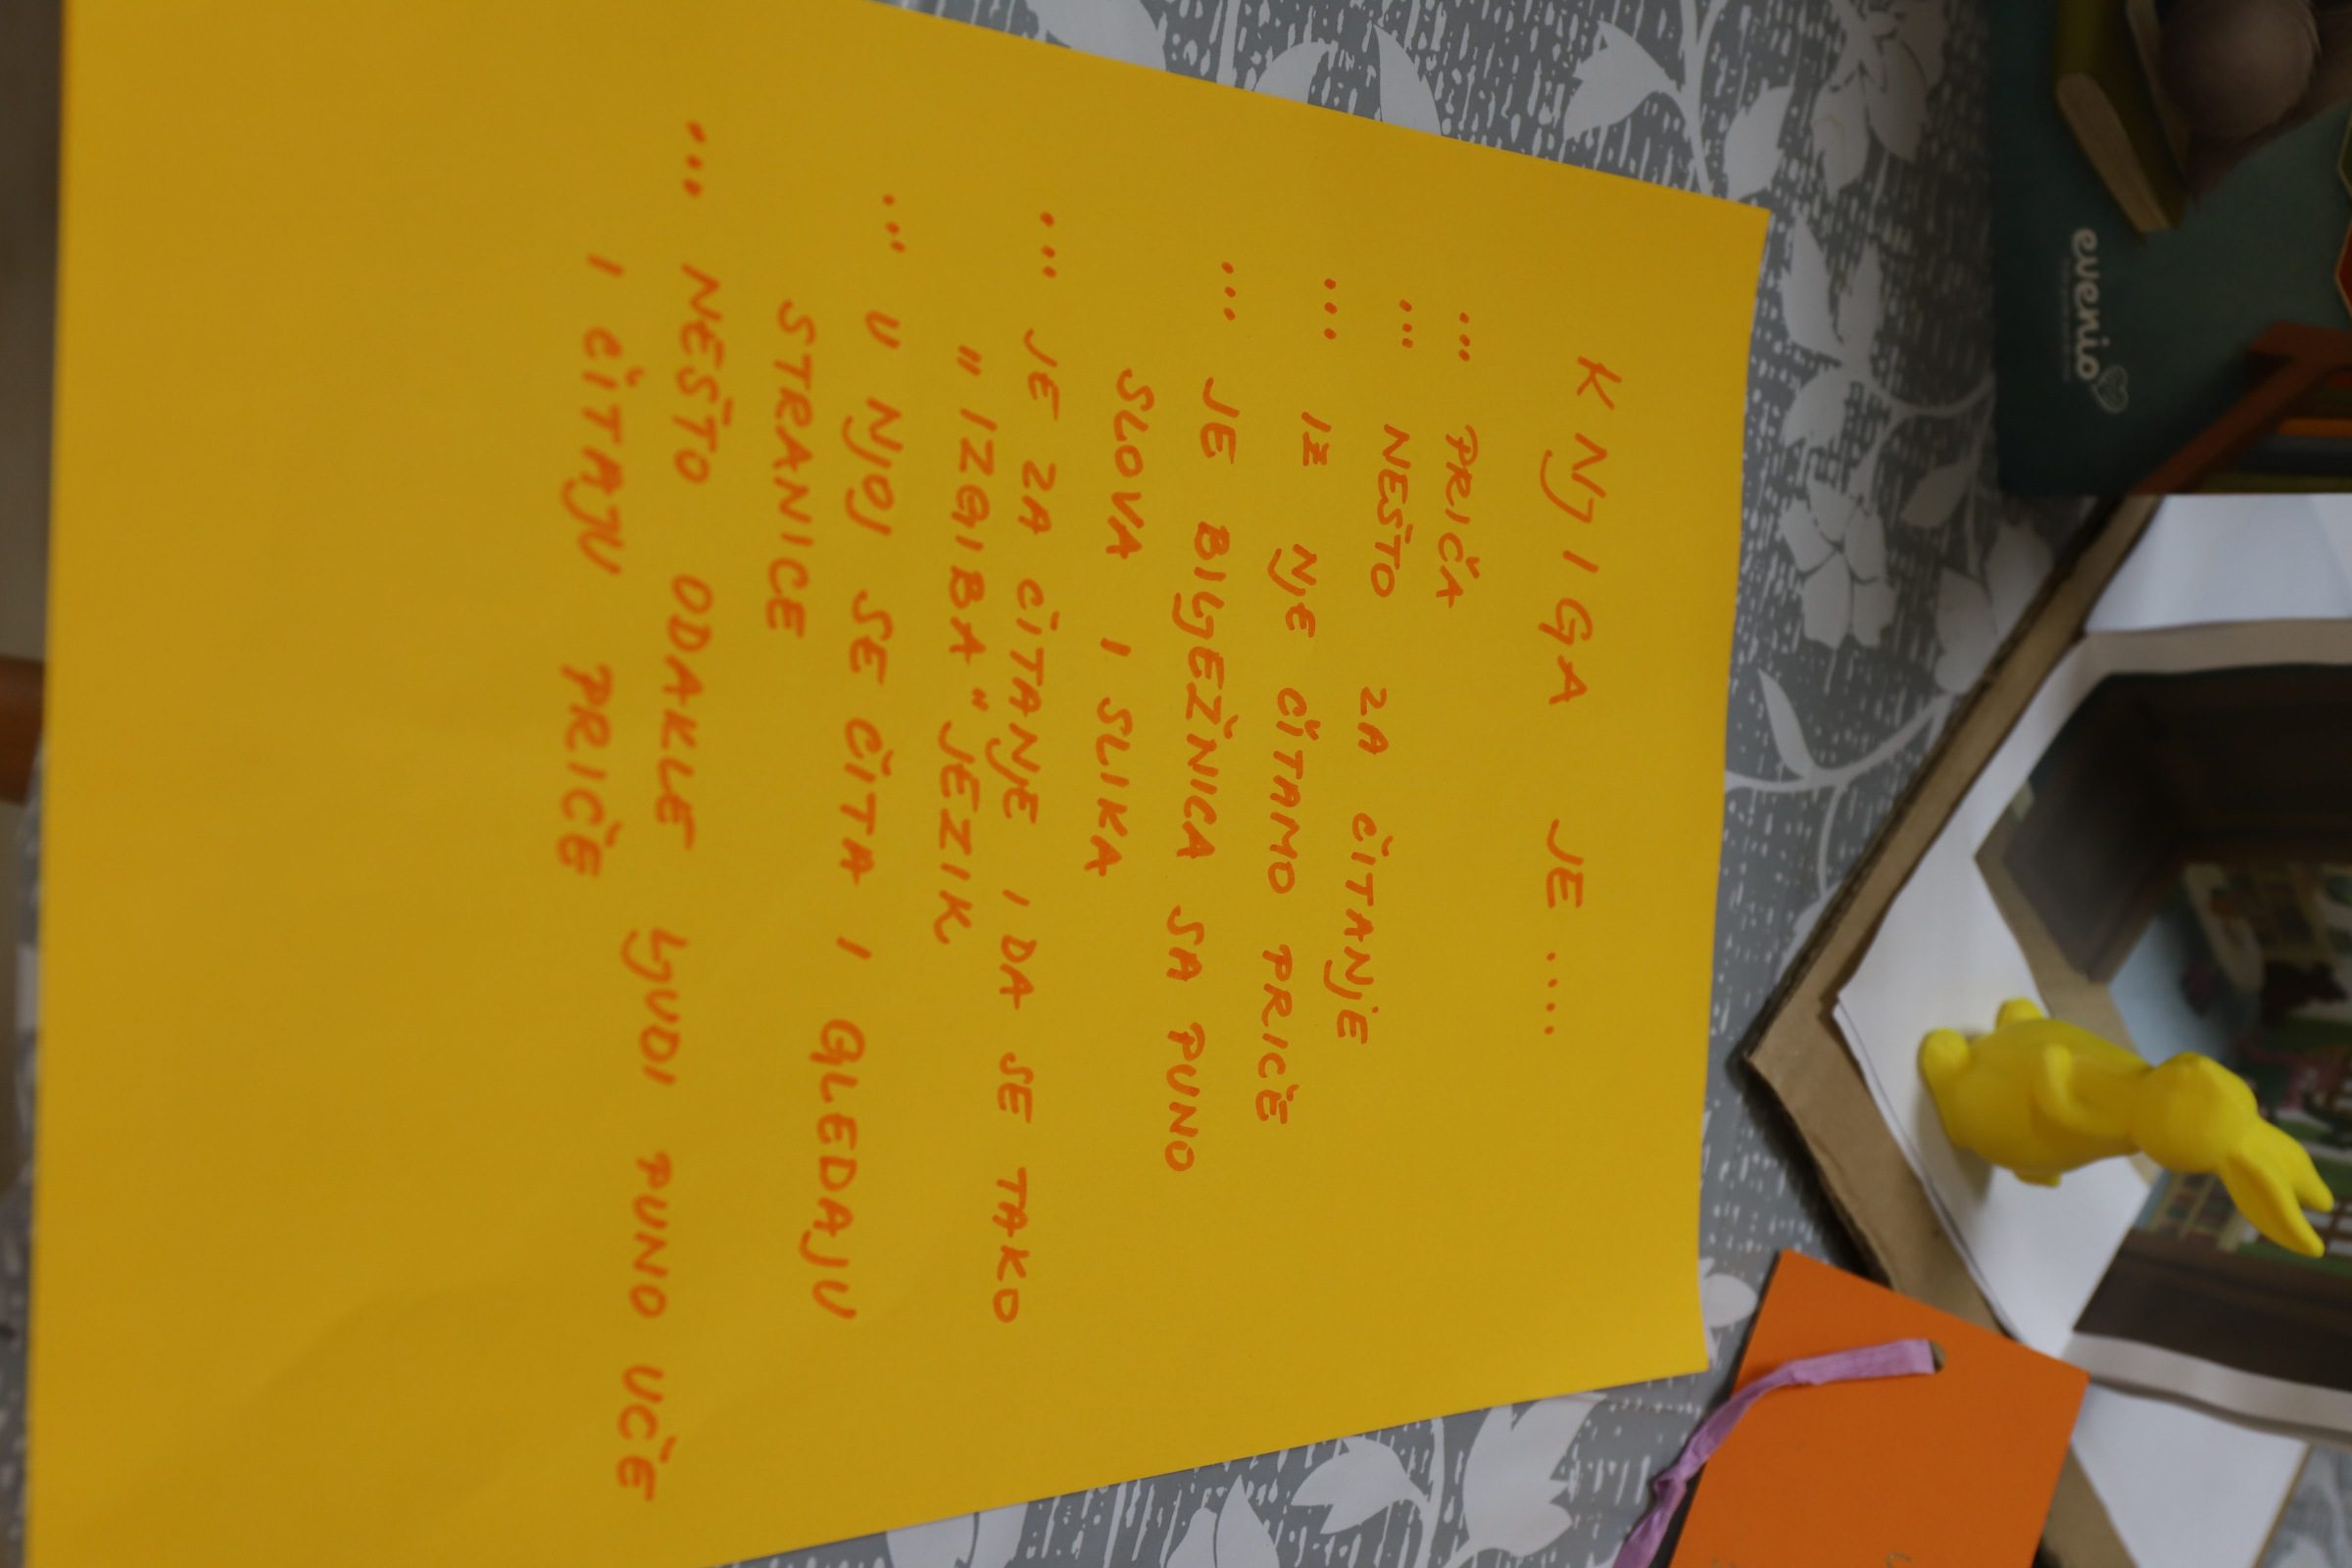 KNJIGA JE ....
... PRIČA
... NEŠTO ZA ČITANJE
... IZ NJE ČITAMO PRIČE
... JE BILJEŽNICA SA PUNO
SLOVA I SLIKA
... JE ZA ČITANJE I DA SE TAKO
"IZGIBA" JEZIK
... U NJOJ SE ČITA I GLEDAJU
STRANICE
... NEŠTO ODAKLE LJUDI PUNO UČE
I ČITAJU PRIČE
evenio